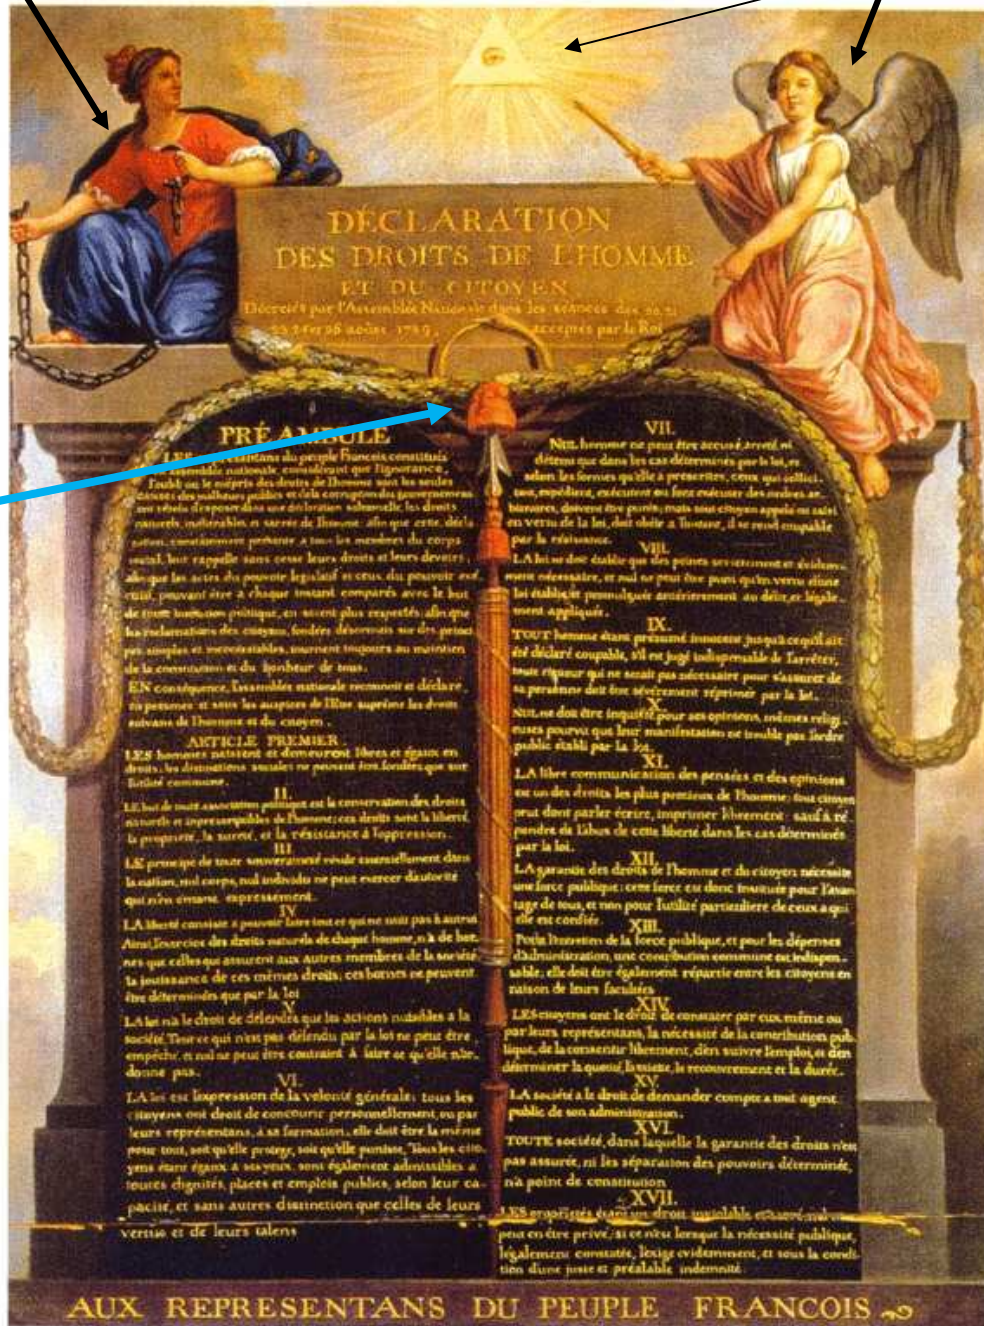 DÉCLARATION
DES DROITS DE L'HOMME
ET DU CITOYEN
Décretés par l'Assemblée Nationale dans les séances des 20, 21
23, 24 et 26 aoûst 1789, acceptés par le Roi
PRÉAMBULE
LES représentans du peuple François, constitués
en assemblée nationale, considérant que l'ignorance,
l'oubli ou le mépris des droits de l'homme sont les seules
causes des malheurs publics et de la corruption des gouvernemens
ont résolu d'exposer dans une déclaration solemnelle, les droits
naturels, inaliénables et sacrés de l'homme; afin que cette décla
ration, constamment présente a tous les membres du corps
social, leur rappelle sans cesse leurs droits et leurs devoirs;
afin que les actes du pouvoir législatif et ceux du pouvoir exé
cutif, pouvant être à chaque instant comparés avec le but
de toute institution politique, en soient plus respectés; afin que
les reclamations des citoyens, fondées désormais sur des princi
pes simples et incontestables, tournent toujours au maintien
de la constitution et du bonheur de tous.
EN conséquence, l'assemblée nationale reconnoit et déclare,
en presence et sous les auspices de l'Etre suprême les droits
suivans de l'homme et du citoyen.
ARTICLE PREMIER
LES hommes naissent et demeurent libres et égaux en
droits, les distinctions sociales ne peuvent être fondées que sur
l'utilité commune.
II.
LE but de toute association politique est la conservation des droits
naturels et imprescriptibles de l'homme; ces droits sont la liberté,
la propriété, la sureté, et la résistance à l'oppression.
III
LE principe de toute souveraineté réside essentiellement dans
la nation, nul corps, nul individu ne peut exercer d'autorité
qui n'en émane expressement.
IV
LA liberté consiste a pouvoir faire tout ce qui ne nuit pas à autrui
Ainsi, l'exercice des droits naturels de chaque homme, n'a de bor
nes que celles qui assurent aux autres membres de la société
la jouissance de ces mêmes droits; ces bornes ne peuvent
être déterminées que par la loi
V
LA loi n'a le droit de défendre que les actions nuisibles a la
société. Tout ce qui n'est pas défendu par la loi ne peut être
empêché, et nul ne peut être contraint à faire ce qu'elle n'or-
donne pas.
VI.
LA loi est l'expression de la volonté générale; tous les
citoyens ont droit de concourir personnellement, ou par
leurs représentans, à sa formation; elle doit être la même
pour tous, soit qu'elle protege, soit qu'elle punisse, Tous les cito
yens étant égaux à ses yeux, sont également admissibles a
toutes dignités, places et emplois publics, selon leur ca-
pacité, et sans autres distinction que celles de leurs
vertus et de leurs talens
VII.
NUL homme ne peut être accusé, arreté, ni
détenu que dans les cas déterminés par la loi, et
selon les formes qu'elle a prescrites, ceux qui sollici-
tent, expédient, exécutent ou font exécuter des ordres ar-
bitraires, doivent être punis; mais tout citoyen appelé ou saisi
en vertu de la loi, doit obéir a l'instant, il se rend coupable
par la résistance.
VIII.
LA loi ne doit établir que des peines strictement et évidem-
ment nécessaire, et nul ne peut être puni qu'en vertu d'une
loi établie et promulguée antérierement au délit, et légale-
ment appliquée.
IX.
TOUT homme étant présumé innocent jusqu'à ce qu'il ait
été déclaré coupable, s'il est jugé indispensable de l'arrêter,
toute rigueur qui ne serait pas nécessaire pour s'assurer de
sa personne doit être sévèrement réprimée par la loi.
X
NUL ne doit être inquiété pour ses opinions, mêmes relig-
ieuses pourvu que leur manifestation ne trouble pas l'ordre
public établi par la loi.
XI.
LA libre communication des pensées et des opinions
est un des droits les plus precieux de l'homme; tout citoyen
peut donc parler écrire, imprimer librement; sauf à ré
pondre de l'abus de cette liberté dans les cas déterminés
par la loi.
XII.
LA garantie des droits de l'homme et du citoyen nécessite
une force publique; cette force est donc instituée pour l'avan
tage de tous, et non pour l'utilité particuliere de ceux a qui
elle est confiée.
XIII.
Pour l'entretien de la force publique, et pour les dépenses
d'administration, une contribution commune est indispen-
sable; elle doit être également répartie entre les citoyens en
raison de leurs facultées
XIV.
LES citoyens ont le droit de constater par eux même ou
par leurs représentans, la nécessité de la contribution pub-
lique, de la consentir librement, d'en suivre l'emploi, et d'en
déterminer la quotité, l'assiette, le recouvrement et la durée.
XV.
LA société a le droit de demander compte a tout agent
public de son administration.
XVI.
TOUTE société, dans laquelle la garantie des droits n'est
pas assurée, ni les séparation des pouvoirs déterminée,
n'a point de constitution
XVII.
LES propriétés étant un droit inviolable et sacré, nul ne
peut en être privé, si ce n'est lorsque la nécessité publique,
légalement constatée, l'exige evidemment, et sous la condi-
tion d'une juste et préalable indemnité
AUX REPRESENTANS DU PEUPLE FRANCOIS